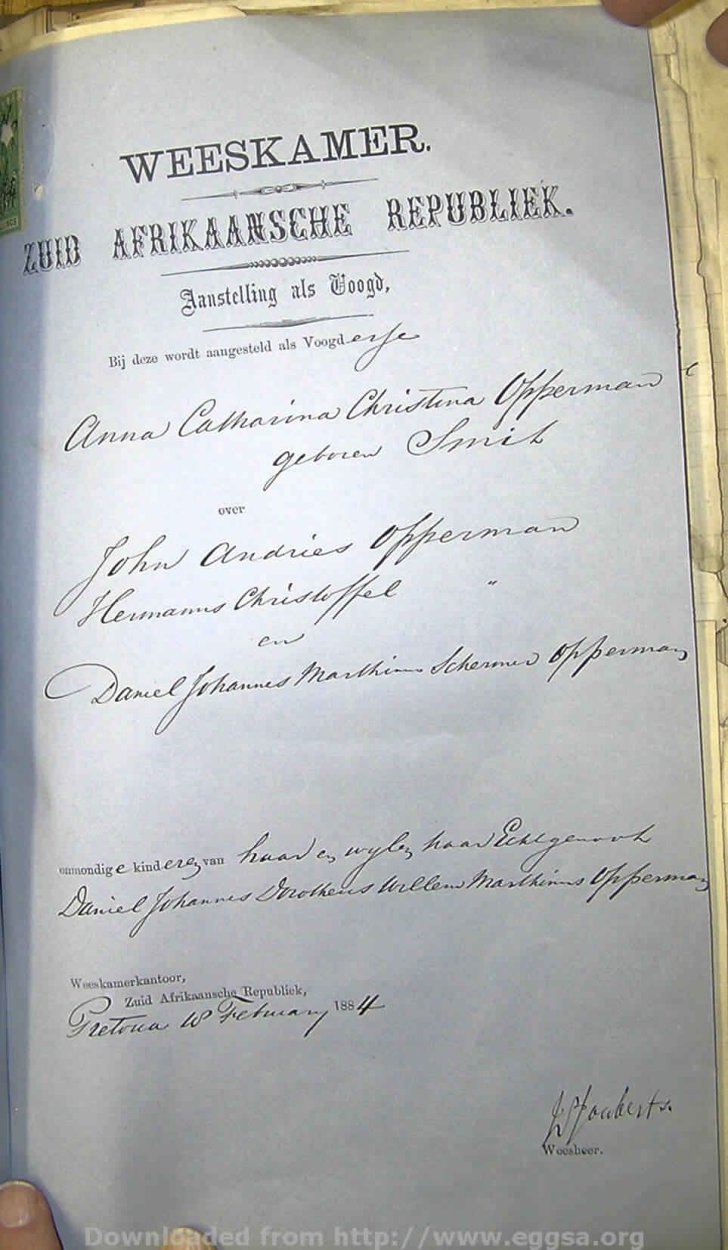 WEESKAMER.
ZUID AFRIKAANSCHE REPUBLIEK.
Aanstelling als Voogd,
Bij deze wordt aangesteld als Voogdesse
Anna Catharina Christina Opperman
geboren Smit
over
John Andries Opperman
Hermanus Christoffel "
en
Daniel Johannes Marthinus Schermer Opperman
onmondige kinderen van haar en wylen haar Echtgenoot
Daniel Johannes Dorotheus Willem Marthinus Opperman
Weeskamerkantoor,
Zuid Afrikaansche Republiek,
Pretoria 18 February 1884
Joubert
Weesheer.
Downloaded from http://www.eggsa.org